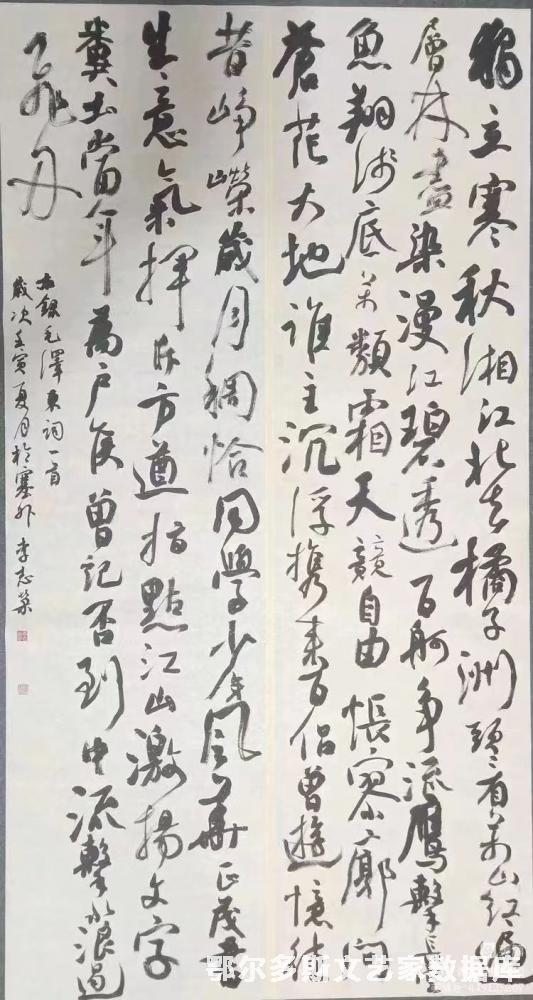 獨立寒秋湘江北去橘子洲頭看万山红遍
層林盡染漫江碧透百舸争流鷹擊長空
魚翔浅底萬類霜天競自由悵寥廓問
蒼茫大地誰主沉浮携来百侣曾遊憶往
昔崢嶸歲月稠恰同學少年風華正茂書
生意氣揮斥方遒指點江山激揚文字
糞土當年萬户侯曾記否到中流擊水浪遏
飛舟
右録毛澤東詞一首
歲次壬寅夏月於塞外 李志榮
鄂尔多斯文艺家数据库